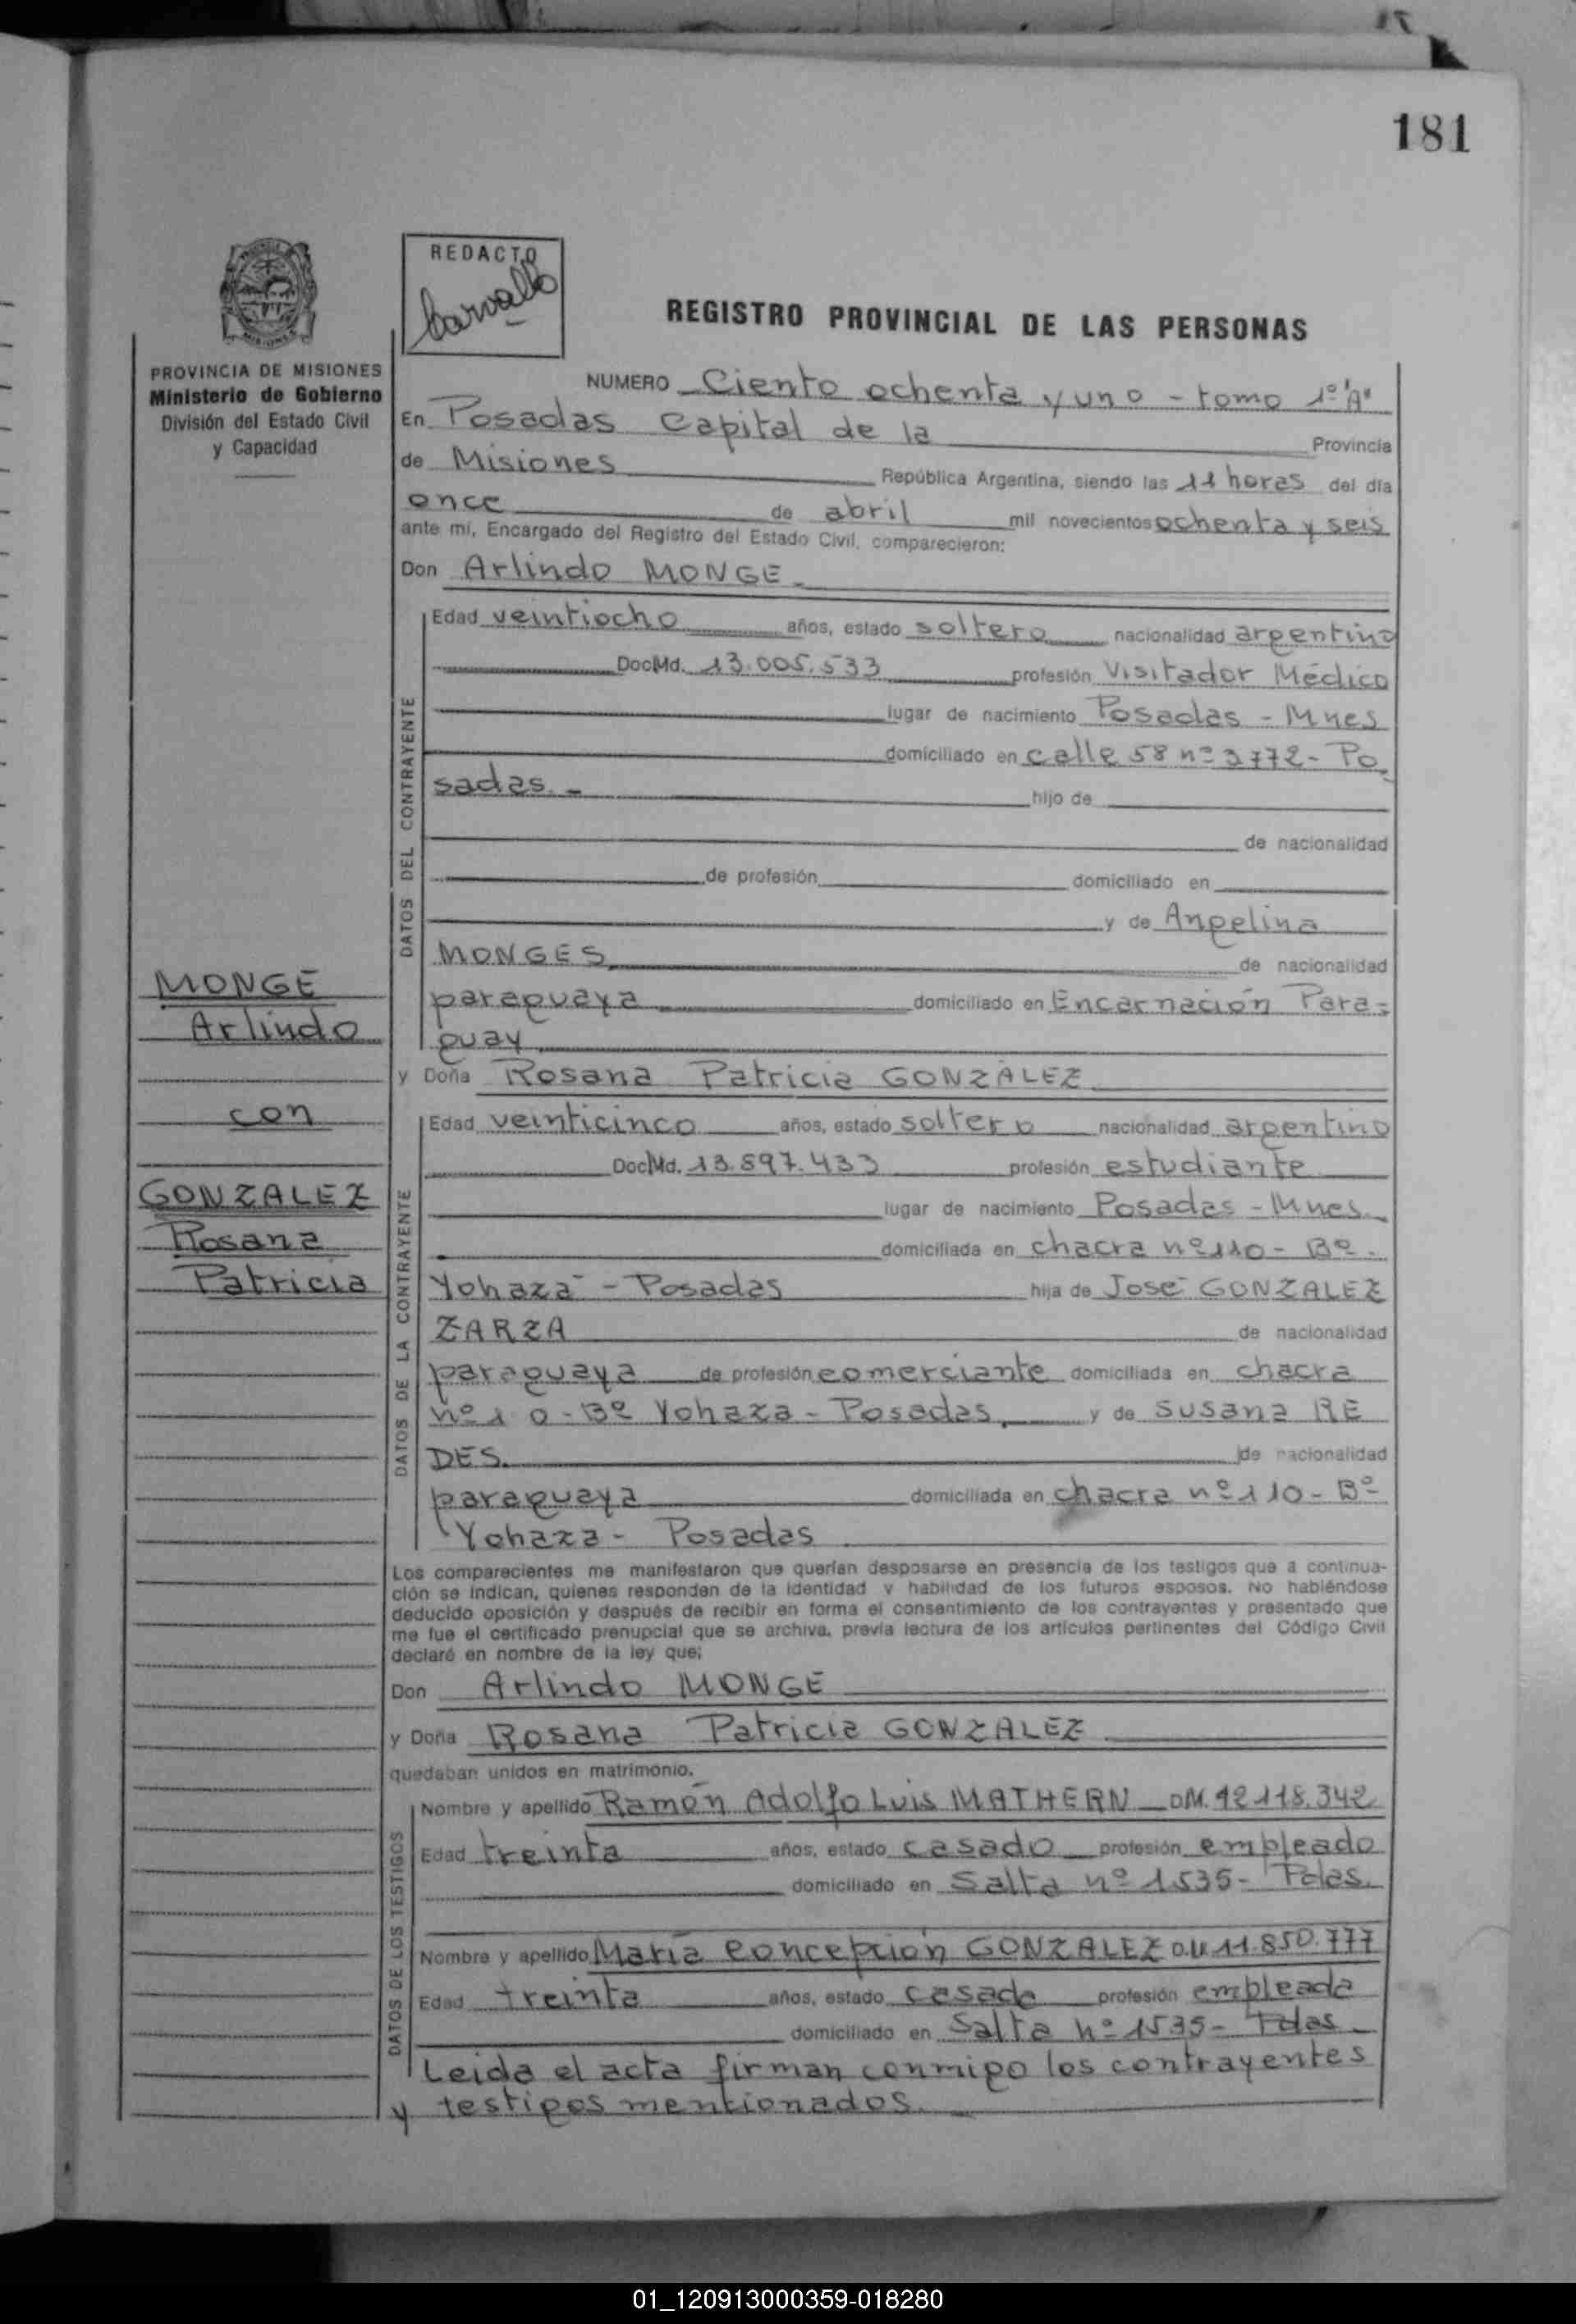 181
REDACTO
Carvallo
REGISTRO PROVINCIAL DE LAS PERSONAS
PROVINCIA DE MISIONES
Ministerio de Gobierno
División del Estado Civil
y Capacidad
NUMERO Ciento ochenta y uno - tomo 1º "A"
En Posadas Capital de la Provincia
de Misiones República Argentina, siendo las 11 horas del día
once de abril mil novecientos ochenta y seis
ante mí, Encargado del Registro del Estado Civil, comparecieron:
Don Arlindo MONGE
MONGE
Arlindo
con
GONZALEZ
Rosana
Patricia
DATOS DEL CONTRAYENTE
Edad veintiocho años, estado soltero nacionalidad argentino
Doc Md. 13.005.533 profesión Visitador Médico
lugar de nacimiento Posadas - Mnes
domiciliado en calle 58 nº 3772 - Po
sadas. - hijo de
de nacionalidad
de profesión domiciliado en
y de Angelina
MONGES de nacionalidad
paraguaya domiciliado en Encarnación Para=
guay
y Doña Rosana Patricia GONZALEZ
DATOS DE LA CONTRAYENTE
Edad veinticinco años, estado soltero nacionalidad argentino
Doc Md. 13.897.433 profesión estudiante
lugar de nacimiento Posadas - Mnes.
domiciliada en chacra nº 110 - Bº.
Yohazá - Posadas hija de José GONZALEZ
ZARZA de nacionalidad
paraguaya de profesión comerciante domiciliada en chacra
nº 1 0 - Bº Yohaza - Posadas, y de Susana RE
DES. de nacionalidad
paraguaya domiciliada en chacra nº 110 - Bº
Yohaza - Posadas
Los comparecientes me manifestaron que querían desposarse en presencia de los testigos que a continua-
ción se indican, quienes responden de la identidad y habilidad de los futuros esposos. No habiéndose
deducido oposición y después de recibir en forma el consentimiento de los contrayentes y presentado que
me fue el certificado prenupcial que se archiva, previa lectura de los artículos pertinentes del Código Civil
declaré en nombre de la ley que;
Don Arlindo MONGE
y Doña Rosana Patricia GONZALEZ
quedaban unidos en matrimonio.
DATOS DE LOS TESTIGOS
Nombre y apellido Ramón Adolfo Luis MATHERN DM. 12.118.342
Edad treinta años, estado casado profesión empleado
domiciliado en Salta nº 1535 - Pdas.
Nombre y apellido María Concepción GONZALEZ D.M. 11.850.777
Edad treinta años, estado casada profesión empleada
domiciliado en Salta nº 1535 - Pdas
Leida el acta firman conmigo los contrayentes
y testigos mencionados.
01_120913000359-018280